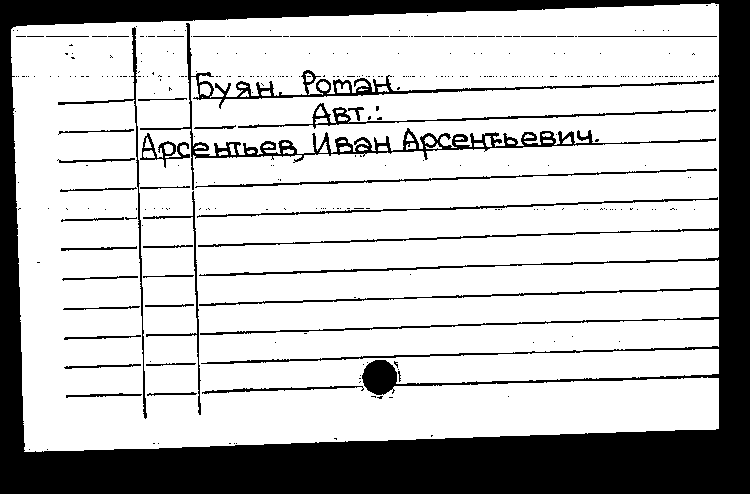 Буян. Роман.
Авт.:
Арсентьев, Иван Арсентьевич.